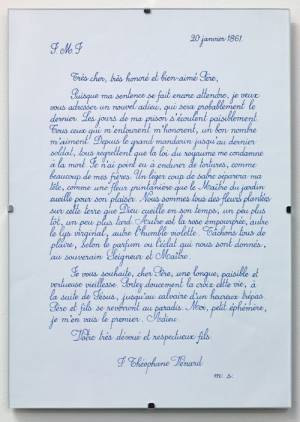 20 janvier 1861.
J M J
Très cher, très honoré et bien-aimé Père,
Puisque ma sentence se fait encore attendre, je veux
vous adresser un nouvel adieu, qui sera probablement le
dernier. Les jours de ma prison s'écoulent paisiblement.
Tous ceux qui m'entourent m'honorent, un bon nombre
m'aiment. Depuis le grand mandarin jusqu'au dernier
soldat, tous regrettent que la loi du royaume me condamne
à la mort. Je n'ai point eu à endurer de tortures, comme
beaucoup de mes frères. Un léger coup de sabre séparera ma
tête, comme une fleur printanière que le Maître du jardin
cueille pour son plaisir. Nous sommes tous des fleurs plantées
sur cette terre que Dieu cueille en son temps, un peu plus
tôt, un peu plus tard. Autre est la rose empourprée, autre
le lys virginal, autre l'humble violette. Tâchons tous de
plaire, selon le parfum ou l'éclat qui nous sont donnés,
au souverain Seigneur et Maître.
Je vous souhaite, cher Père, une longue, paisible et
vertueuse vieillesse. Portez doucement la croix cette vie, à
la suite de Jésus, jusqu'au calvaire d'un heureux trépas.
Père et fils se reverront au paradis. Moi, petit éphémère,
je m'en vais le premier. Adieu.
Votre très dévoué et respectueux fils
J Théophane Vénard
m. s.